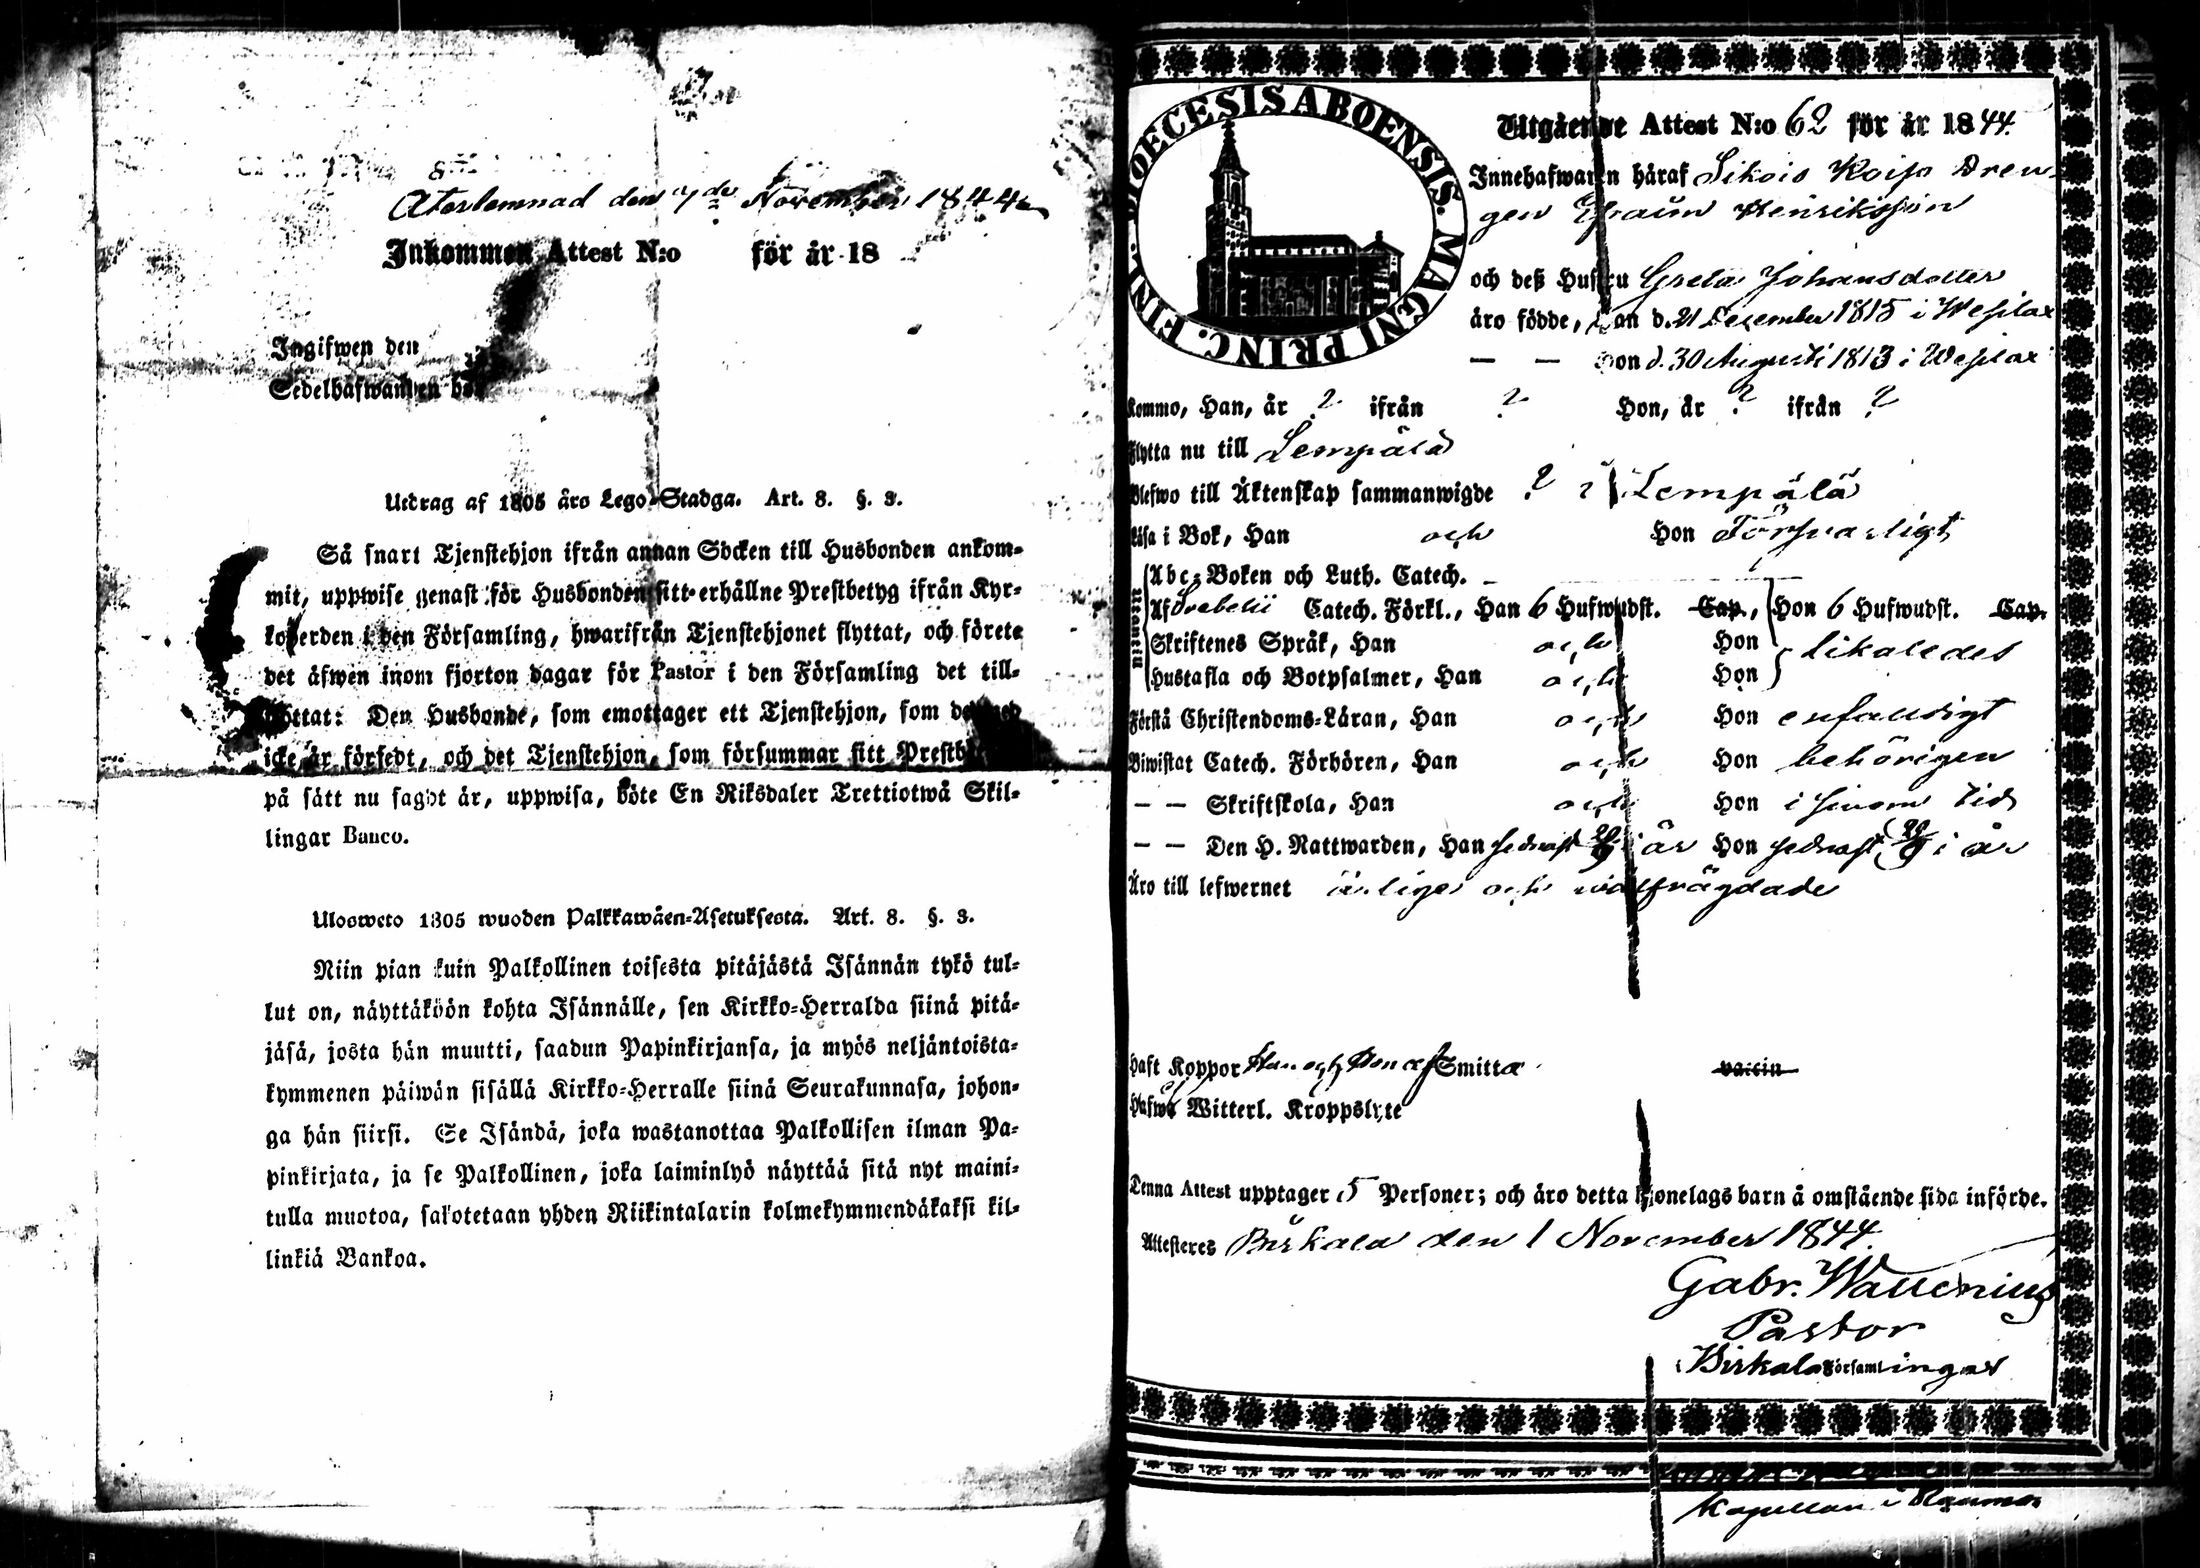 Återlemnad den 7de November 1844
Inkommen Attest N:o för år 18
Ingifwen den
Sedelhafwanden
Utdrag af 1805 års Lego-Stadga. Art. 8. §. 3.
Så snart Tjenstehjon ifrån annan Socken till Husbonden ankom-
mit, uppwise genast för Husbonden sitt erhållne Prestbetyg ifrån Kyr-
koherden i den Församling, hwarifrån Tjenstehjonet flyttat, och förete
det äfwen inom fjorton dagar för Pastor i den Församling det till-
flyttat: Den Husbonde, som emottager ett Tjenstehjon, som
icke är försedt, och det Tjenstehjon, som försummar sitt
på sätt nu sagdt är, uppwisa, böte En Riksdaler Trettiotwå Skil-
lingar Banco.
Ulosweto 1805 wuoden Palkkawäen-Asetuksesta. Art. 8. §. 3.
Niin pian kuin Palkollinen toisesta pitäjästä Isännän tykö tul-
lut on, näyttäköön kohta Isännälle, sen Kirkko-Herralda siinä pitä-
jäsä, josta hän muutti, saadun Papinkirjansa, ja myös neljäntoista-
kymmenen päiwän sisällä Kirkko-Herralle siinä Seurakunnasa, johon-
ga hän siirsi. Se Isändä, joka wastanottaa Palkollisen ilman Pa-
pinkirjata, ja se Palkollinen, joka laiminlyö näyttää sitä nyt maini-
tulla muotoa, sakotetaan yhden Riikintalarin kolmekymmendäkaksi kil-
linkiä Bankoa.
DIOECESIS ABOENSIS. MAGNI PRINC. FINL.
Utgående Attest N:o 62 för år 1844.
Innehafwaren häraf Sikois Koijo Dren-
gen Henriksson
och deß Hustru Greta Johansdotter
äro födde, Han d. 21 December 1815 i Wesilax
— — Hon d. 30 Augusti 1813 i Wesilax
Kommo, Han, år ? ifrån ? Hon, år ? ifrån ?
Flytta nu till Lempälä
Blefwo till Äktenskap sammanwigde ? i Lempälä
Läsa i Bok, Han och Hon Försvarligt
Abc-Boken och Luth. Catech. —
Utantill
Af Svebelii Catech. Förkl., Han 6 Hufwudst. Cap., Hon 6 Hufwudst. Cap.
Skriftenes Språk, Han och Hon likaledes
Hustafla och Botpsalmer, Han och Hon
Förstå Christendoms-Läran, Han och Hon enfaldigt
Biwistat Catech. Förhören, Han och Hon behörigen
— — Skriftskola, Han och Hon i sinom tid
— — Den H. Nattwarden, Han sednast 29/9 i år Hon sednast 29/9 i år
Äro till lefwernet ärlige och wälfrägdade
Haft Koppor Han och Hon af Smitta vaccin
Hafwa Witterl. Kroppslyte
Denna Attest upptager 5 Personer; och äro detta Hjonelags barn å omstående sida införde.
Attesteres Birkala den 1 November 1844.
Gabr. Wallenius
Pastor
i Birkala Församlingar